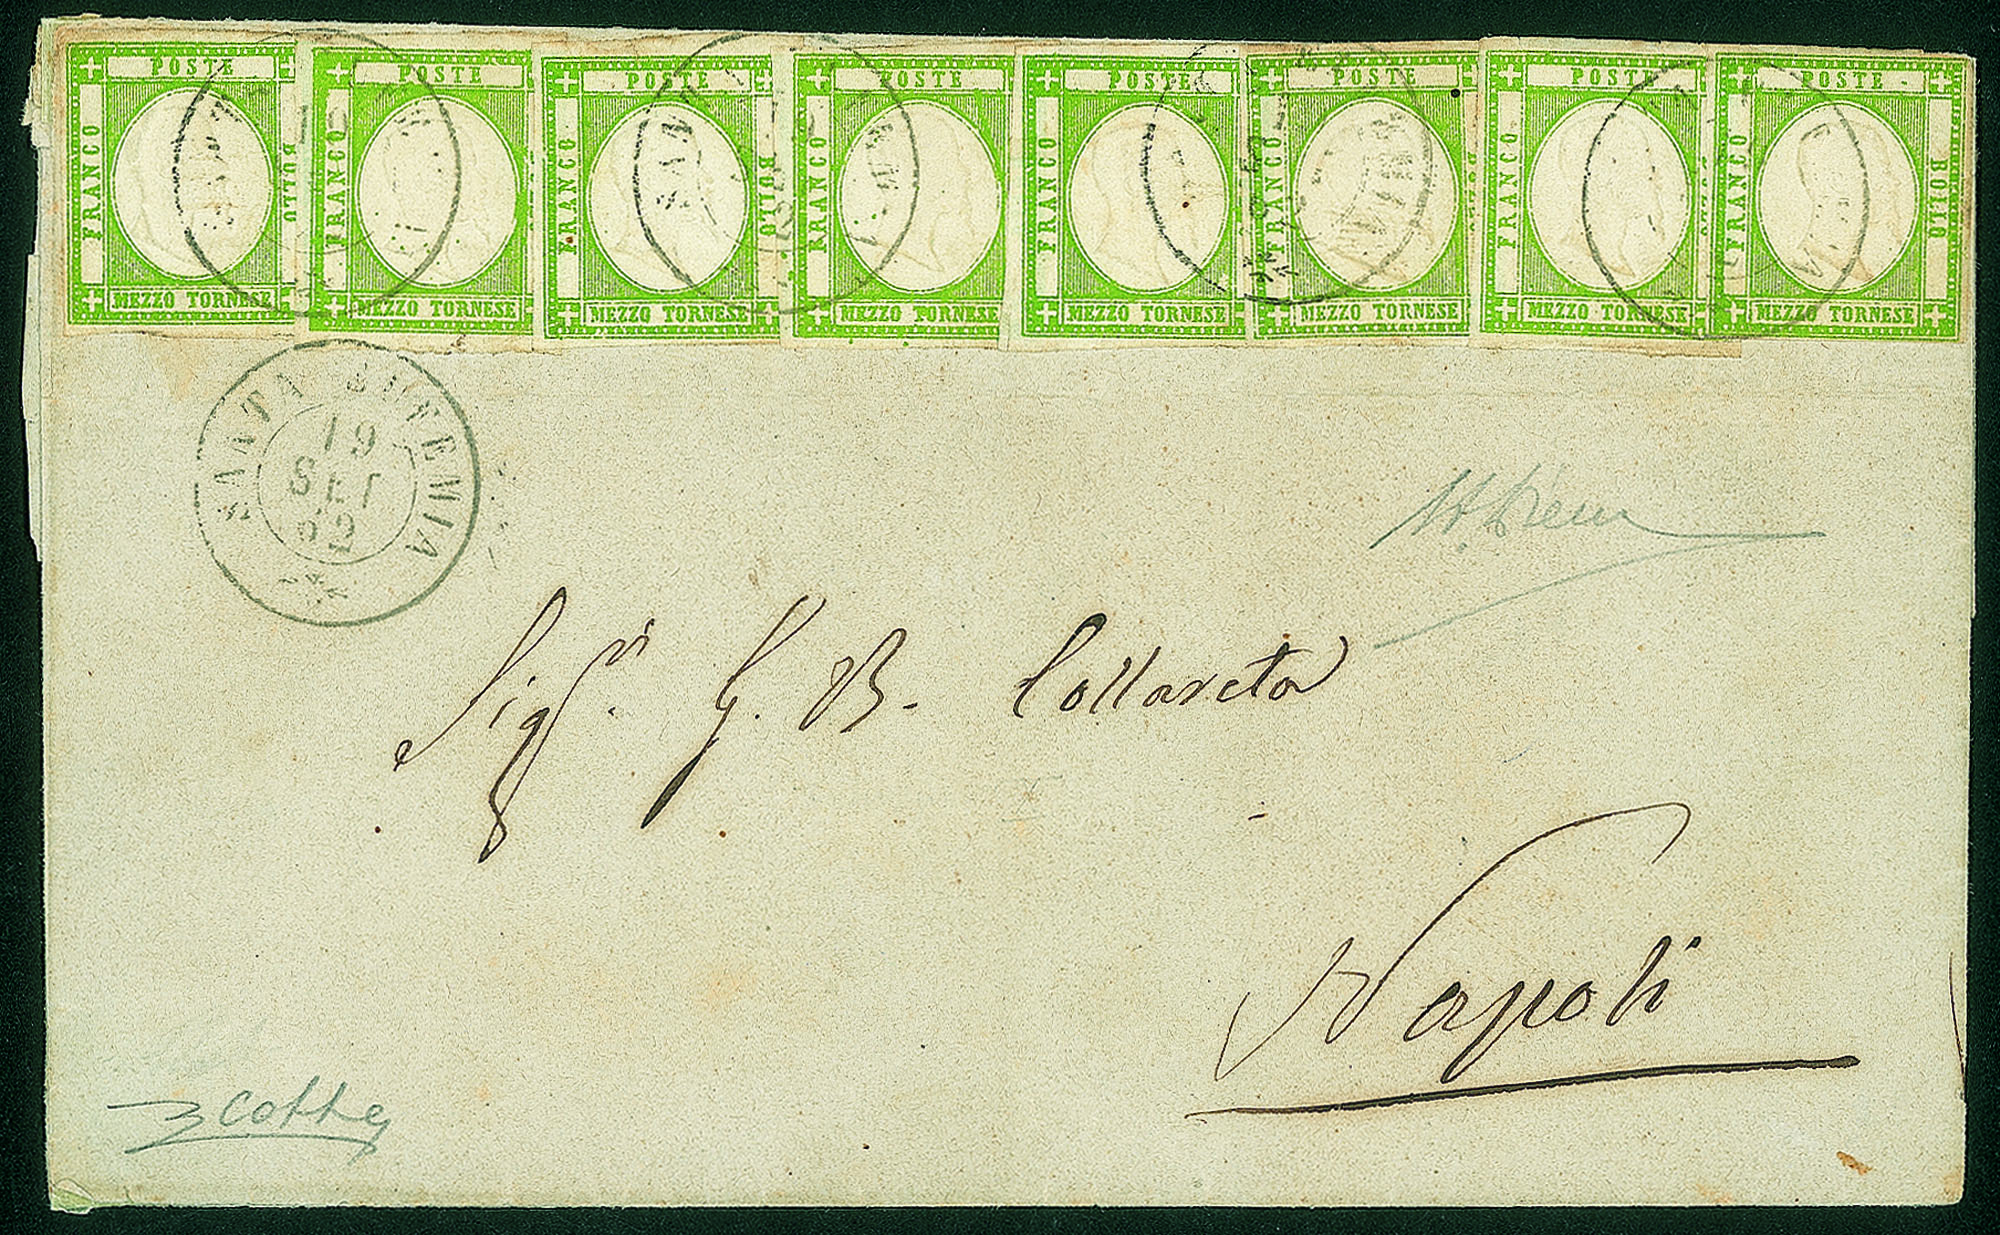 POSTE POSTE POSTE POSTE POSTE POSTE POSTE POSTE
FRANCO BOLLO FRANCO FRANCO BOLLO FRANCO FRANCO FRANCO FRANCO FRANCO BOLLO
MEZZO TORNESE MEZZO TORNESE MEZZO TORNESE MEZZO TORNESE MEZZO TORNESE MEZZO TORNESE MEZZO TORNESE MEZZO TORNESE
SANTA EUFEMIA
19
SET
62
Sigr. G. B. Collareta
Napoli